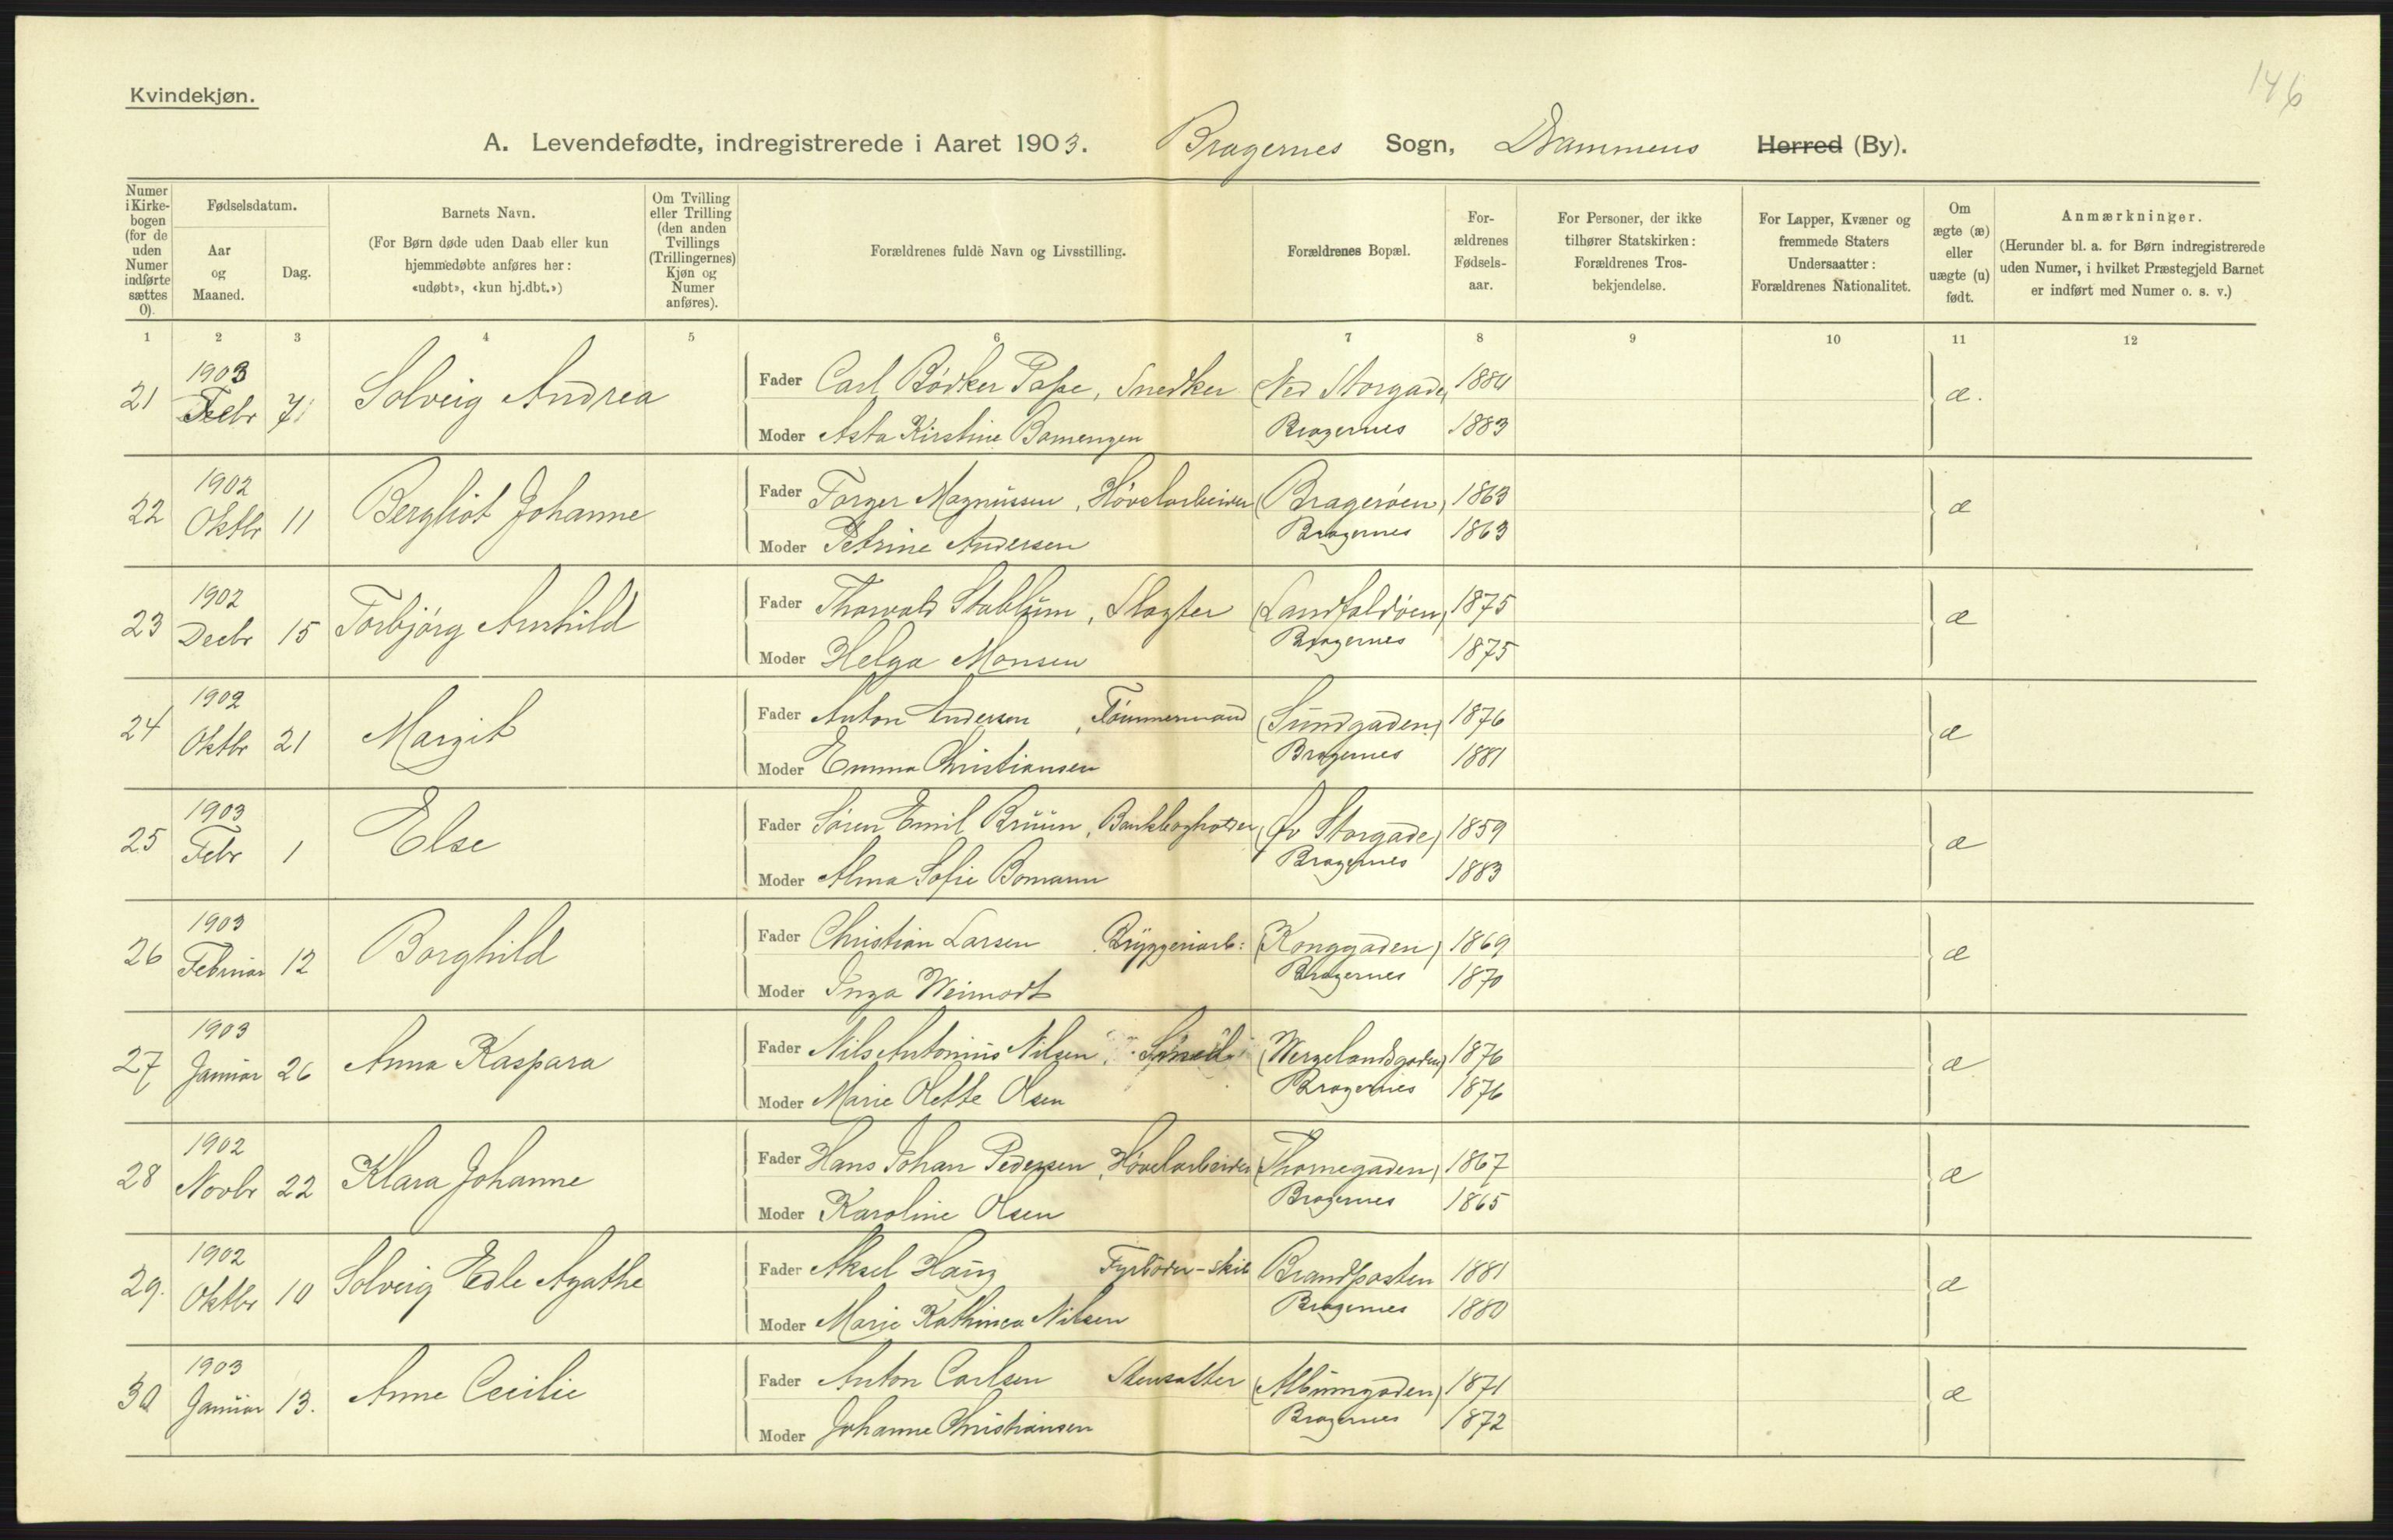 146
Kvindekjøn.
A. Levendefødte, indregistrerede i Aaret 1903. Bragernes Sogn, Drammens Herred (By).
Numer i Kirkebogen (for de uden Numer indførte sættes 0).
Fødselsdatum.
Aar og Maaned.
Dag.
Barnets Navn.
(For Børn døde uden Daab eller kun hjemmedøbte anføres her: «udøbt», «kun hj.dbt.»)
Om Tvilling eller Trilling (den anden Tvillings (Trillingernes) Kjøn og Numer anføres).
Forældrenes fulde Navn og Livsstilling.
Forældrenes Bopæl.
Forældrenes Fødselsaar.
For Personer, der ikke tilhører Statskirken: Forældrenes Trosbekjendelse.
For Lapper, Kvæner og fremmede Staters Undersaatter: Forældrenes Nationalitet.
Om ægte (æ) eller uægte (u) født.
Anmærkninger.
(Herunder bl. a. for Børn indregistrerede uden Numer, i hvilket Præstegjeld Barnet er indført med Numer o. s. v.)
1 2 3 4 5 6 7 8 9 10 11 12
21 1903 Febr 7 Solveig Andrea Fader Carl Bødker Pape, Snedker (Ned Storgade) 1884 æ.
Moder Asta Kirstine Bomengen Bragernes 1883
22 1902 Oktbr 11 Bergliot Johanne Fader Torger Magnussen, Høvelarbeider (Bragerøen) 1863 æ
Moder Petrine Andersen Bragernes 1863
23 1902 Decbr 15 Torbjörg Arnhild Fader Thorvald Stablum, Slagter (Landfaldøen) 1875 æ
Moder Helga Monsen Bragernes 1875
24 1902 Oktbr 21 Margit Fader Anton Andersen, Tømmermand (Sundgaden) 1876 æ
Moder Emma Christiansen Bragernes 1881
25 1903 Febr 1 Else Fader Søren Emil Bruun, Bankbogholder (Øv Storgade) 1859 æ
Moder Alma Sofie Bomann Bragernes 1883
26 1903 Februar 12 Borghild Fader Christian Larsen Bryggeriarb: (Konggaden) 1869 æ
Moder Inga Weimodt Bragernes 1870
27 1903 Januar 26 Anna Kaspara Fader Nils Antonius Nilsen, Smed (Wergelandsgaden) 1876 æ
Moder Marie Olette Olsen Bragernes 1876
28 1902 Novbr 22 Klara Johanne Fader Hans Johan Pedersen, Høvelarbeider (Thornegaden) 1867 æ
Moder Karoline Olsen Bragernes 1865
29. 1902 Oktbr 10 Solveig Edle Agathe Fader Aksel Haug Fyrbøder-skib Brandposten 1881 æ
Moder Marie Kathinca Nilsen Bragernes 1880
30 1903 Januar 13. Anne Cecilie Fader Anton Carlsen Stensætter (Albumgaden) 1871 æ
Moder Johanne Christiansen Bragernes 1872